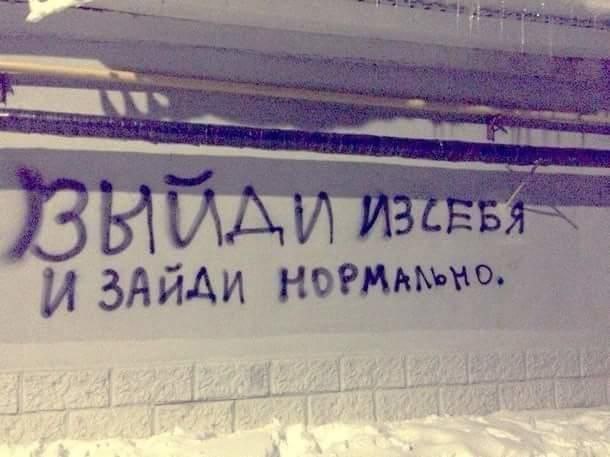 ВЫЙДИ ИЗ СЕБЯ
И ЗАЙДИ НОРМАЛЬНО.